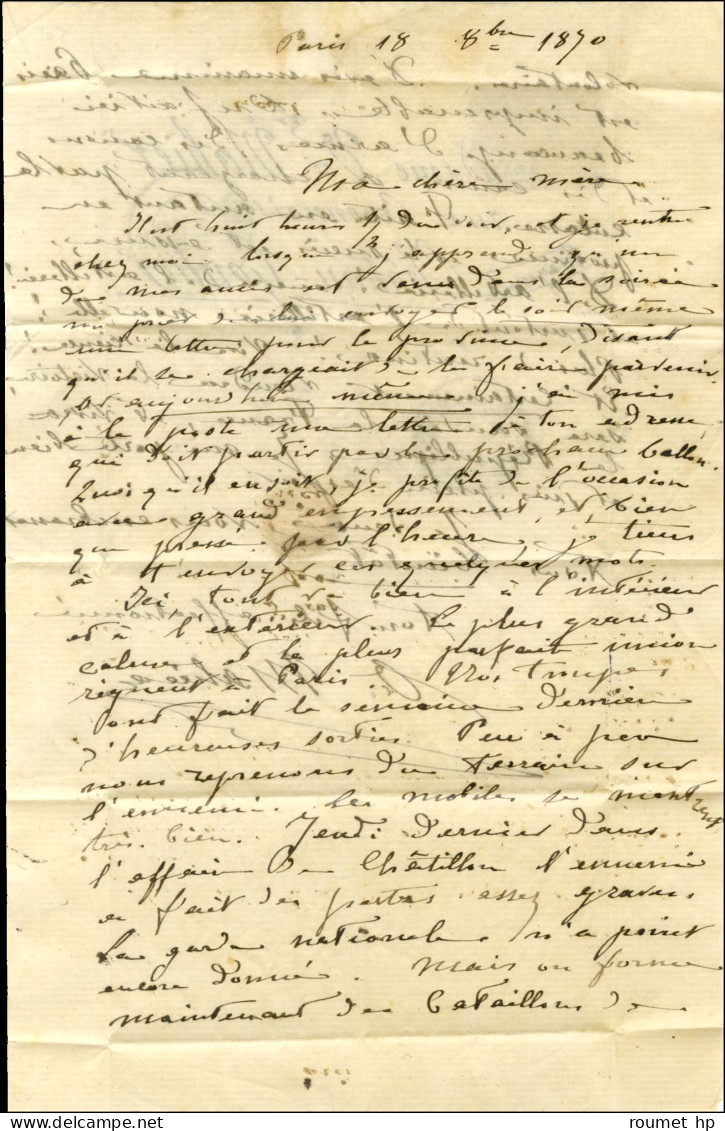 Paris 18 8bre 1870
Ma chère mère
Il est huit heures 1/2 du soir et je rentre
chez moi lorsque j'apprends qu'un
de mes amis est venu dans la soirée
me prier de lui envoyer le soir même
une lettre pour la province, disant
qu'il se chargeait de la faire parvenir.
Or aujourd'hui même j'ai mis
à la poste une lettre à ton adresse
qui doit partir par le prochain ballon.
Quoiqu'il en soit, je profite de l'occasion
avec grand empressement, et bien
que pressé par l'heure, je tiens
à t'envoyer ces quelques mots.
Ici, tout va bien à l'intérieur
et à l'extérieur. Le plus grand
calme et la plus parfaite union
règnent à Paris. Nos troupes
ont fait la semaine dernière
d'heureuses sorties. Peu à peu
nous reprenons du terrain sur
l'ennemi. Les mobiles se montrent
très bien. Jeudi dernier dans
l'affaire de Châtillon l'ennemi
a fait des pertes assez graves.
La garde nationale n'a point
encore donné. Mais on forme
maintenant des bataillons de
© roumet hp